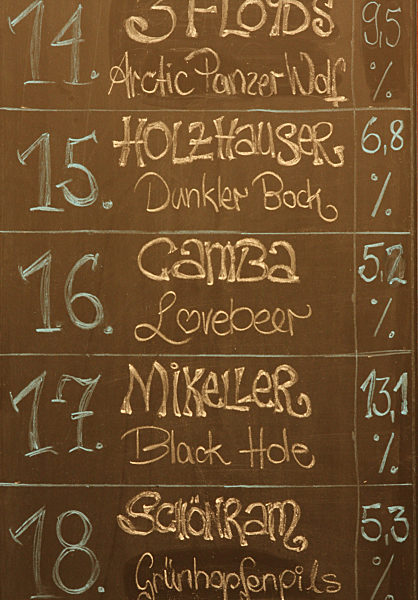 14. 3 FLOYDS 9,5
Arctic Panzer Wolf %
15. HOLZHAUSER 6,8
Dunkler Bock %
16. CAMBA 5,2
Lovebeer %
17. MIKELLER 13,1
Black Hole %
18. SCHÖNRAM 5,3
Grünhopfenpils %